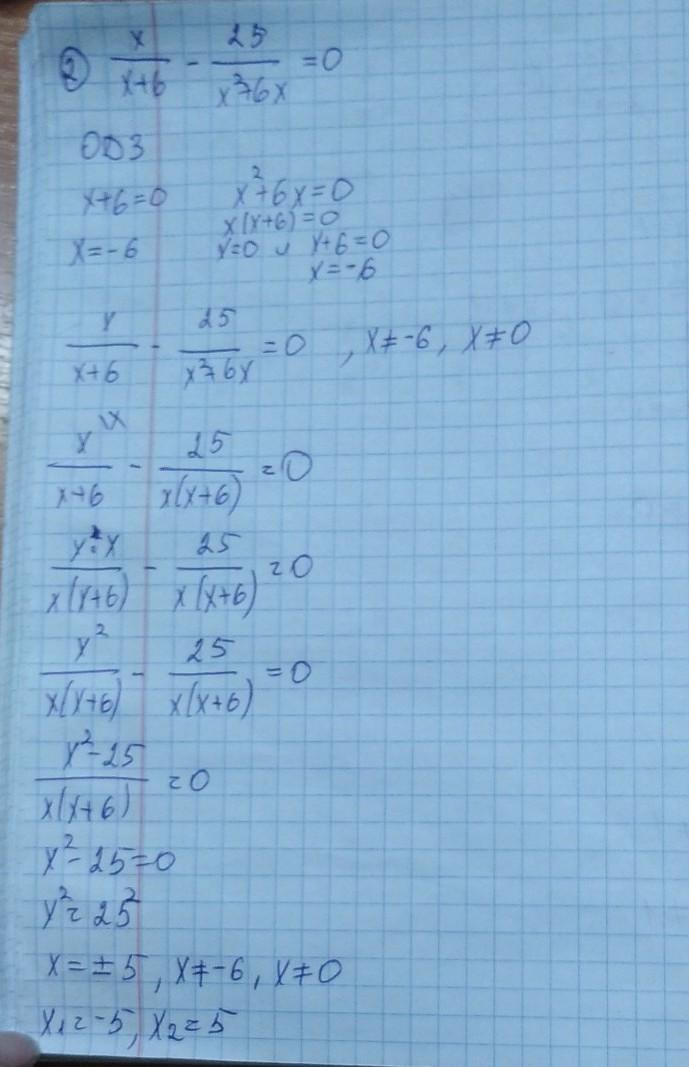 ② x/(x+6) - 25/(x²+6x) = 0
ОДЗ
x+6=0    x²+6x=0
x(x+6)=0
x=-6    x=0 и x+6=0
x=-6
x/(x+6) - 25/(x²+6x) = 0 , x≠-6, x≠0
x\x/(x+6) - 25/(x(x+6)) = 0
x·x/(x(x+6)) - 25/(x(x+6)) = 0
x²/(x(x+6)) - 25/(x(x+6)) = 0
(x²-25)/(x(x+6)) = 0
x²-25=0
x²=25²
x=±5, x≠-6, x≠0
x₁=-5, x₂=5